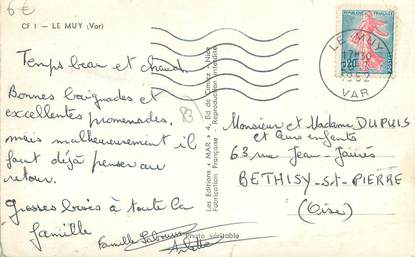 6€
CF 1 - LE MUY (Var)
Temps beau et chaud.
Bonnes baignades et
excellentes promenades,
mais malheureusement il
faut déjà penser au
retour.
Grosses bises à toute la
famille
Famille
Photo véritable
Les Editions "MAR", Ed. de Cimiez - Nice
Fabrication Française - Reproduction interdite
REPUBLIQUE FRANÇAISE
LE MUY
1962
VAR
Monsieur et Madame DUPUIS
et leurs enfants
63 rue Jean-Jaurès
BETHISY-St-PIERRE
(Oise)